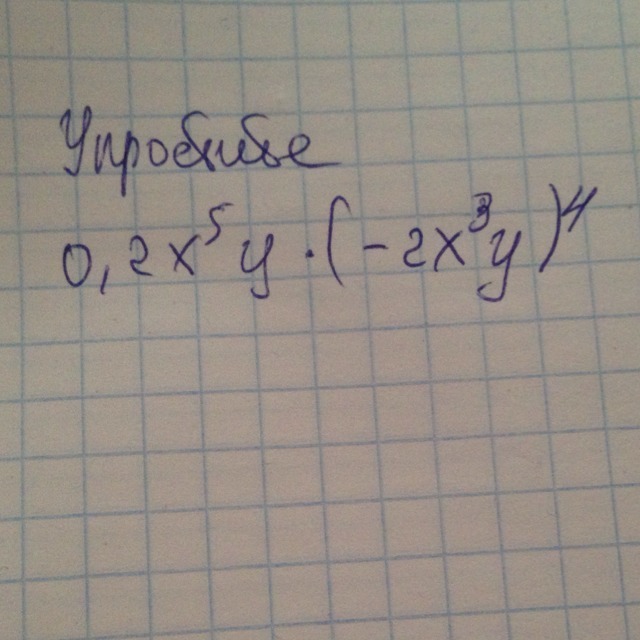 Упробиве
0,2x⁵y·(-2x³y)⁴